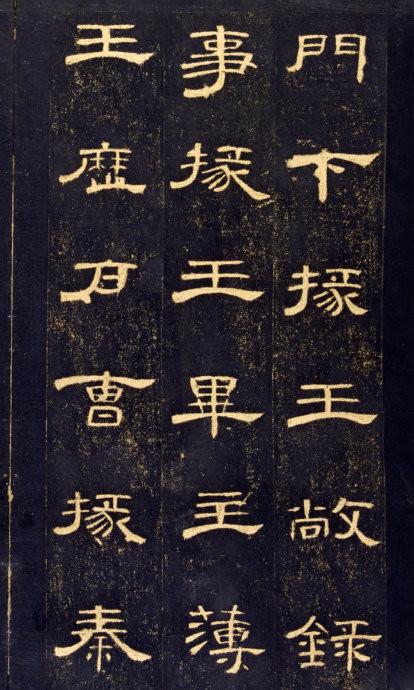 門下掾王敞録
事掾王畢主薄
王歷户曹掾秦